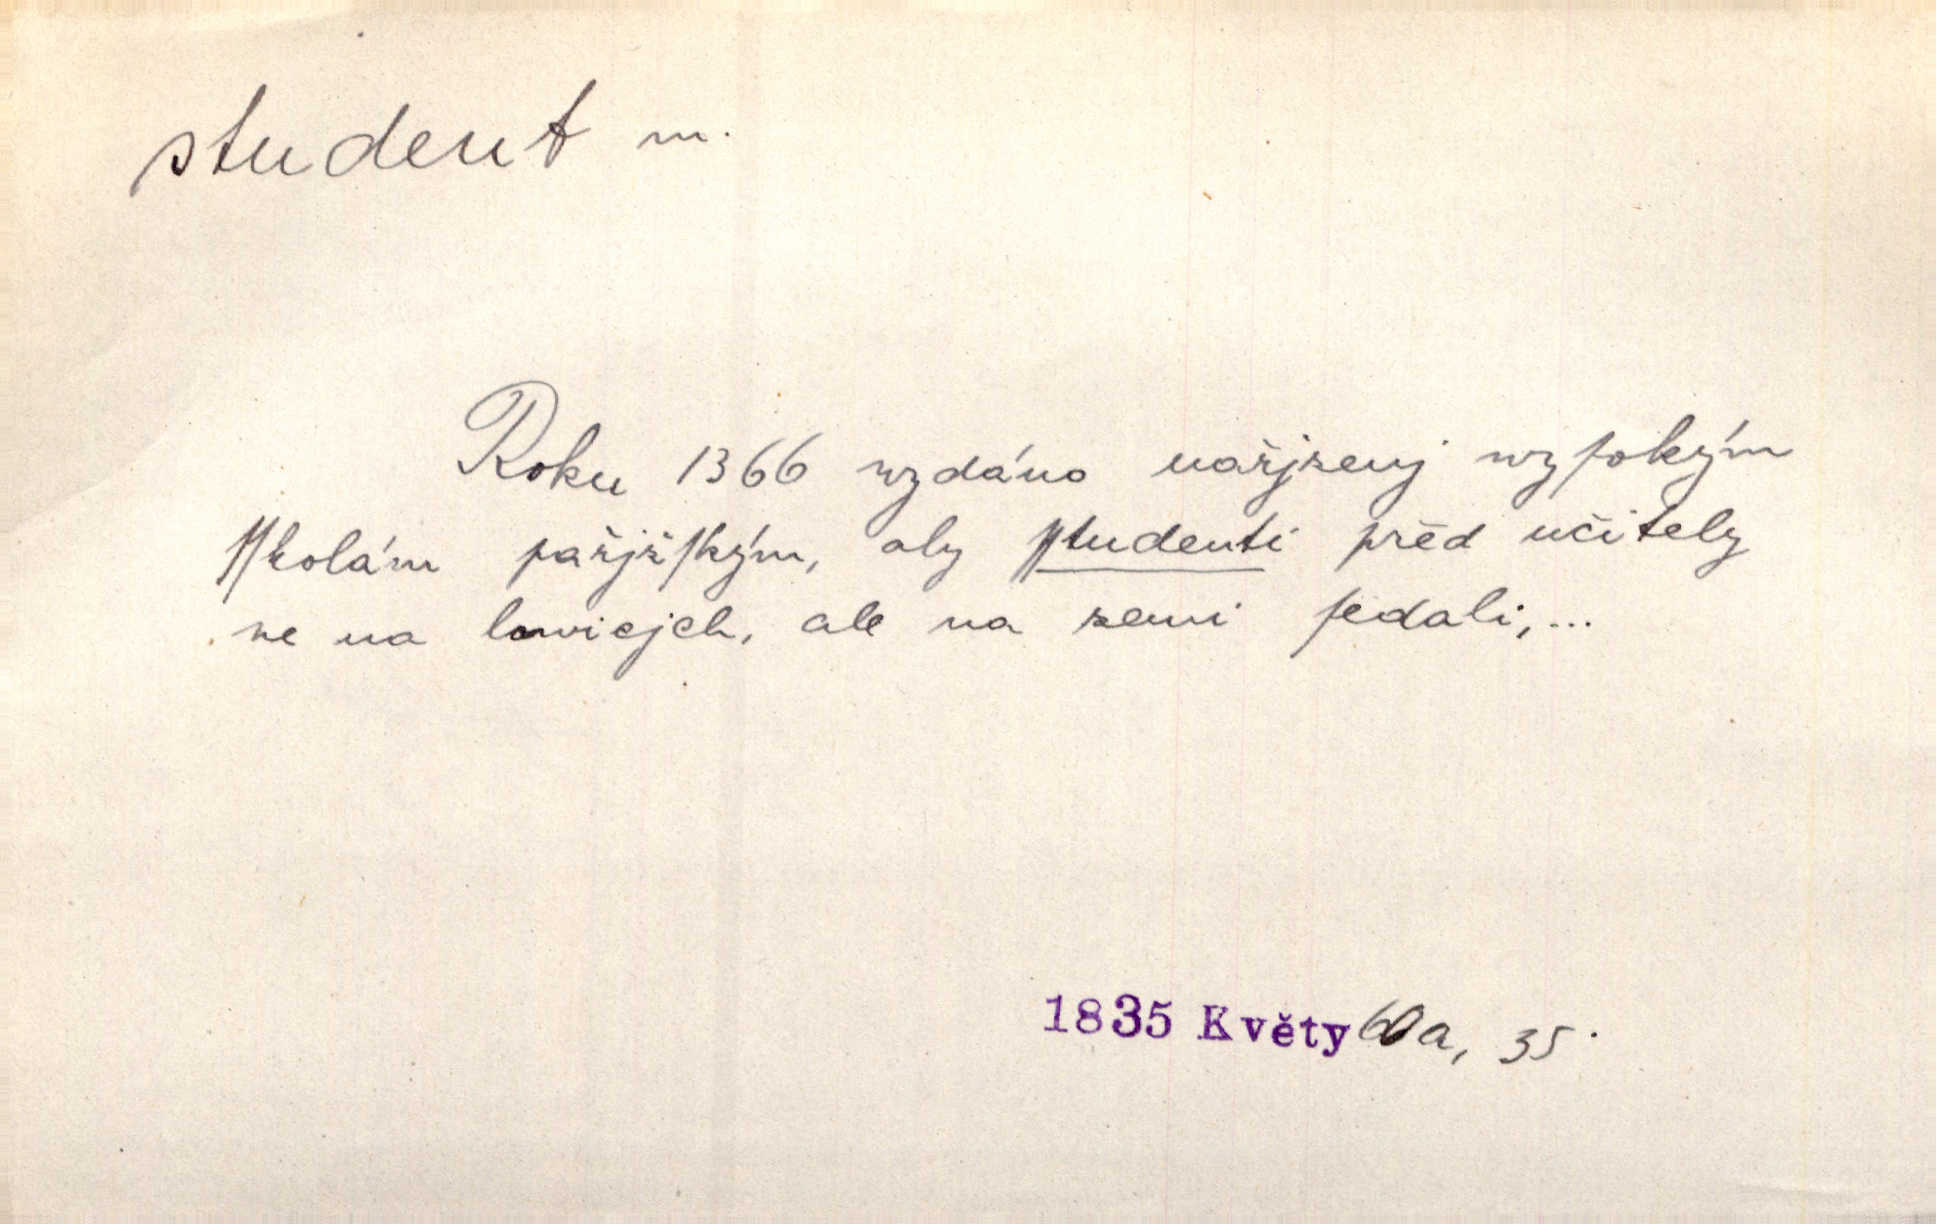 student m.
Roku 1366 wydáno nařjzenj wyſokým
ſſkolám pařjžſkým, aby ſſtudenti před učitely
ne na lawicjch, ale na zemi ſedali,...
1835 Květy 60a, 35.